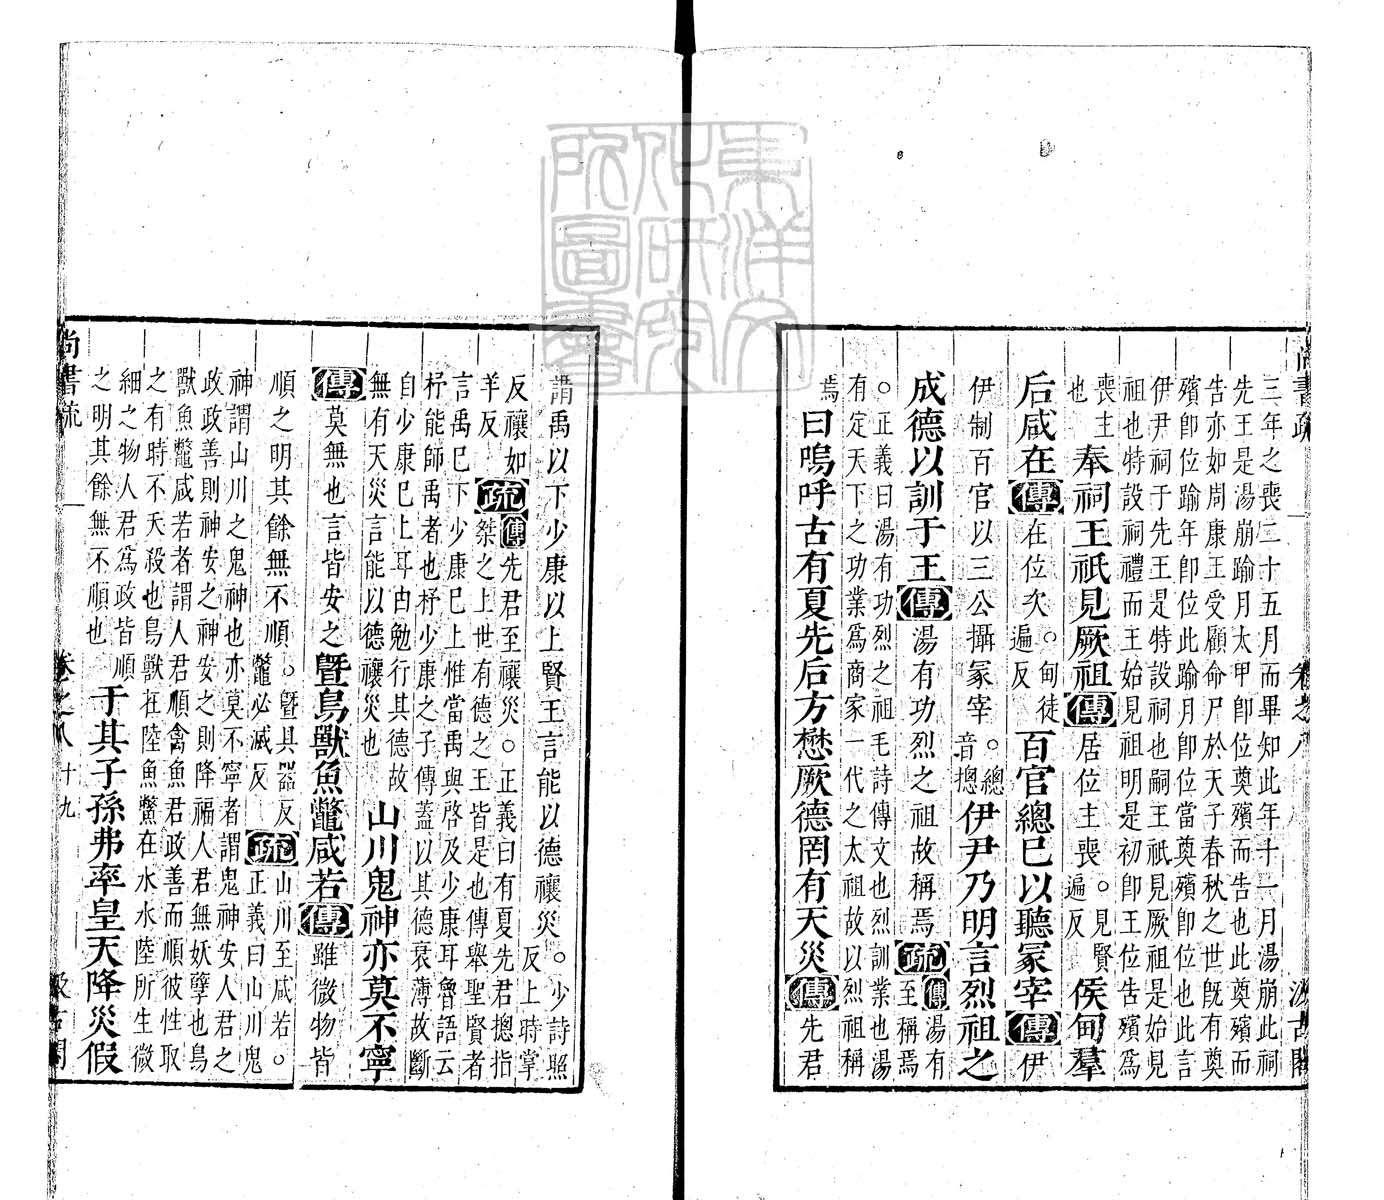 三年之喪二十五月而畢知此年十一月湯崩此祠
先王是湯崩踰月太甲卽位奠殯而告也此奠殯而
告亦如周康王受顧命尸於天子春秋之世旣有奠
殯卽位踰年卽位此踰月卽位當奠殯卽位也此言
伊尹祠于先王是特設祠也嗣王祇見厥祖是始見
祖也特設祠禮而王始見祖明是初卽王位告殯爲
喪主
也
奉祠王祇見厥祖傳
居位主喪。見賢
遍反
侯甸羣
后咸在傳
在位次。甸徒
遍反
百官總已以聽冢宰傳
伊
伊制百官以三公攝冢宰。總
音揔
伊尹乃明言烈祖之
成德以訓于王傳
湯有功烈之祖故稱焉
疏
傳湯有
至稱焉
。正義曰湯有功烈之祖毛詩傳文也烈訓業也湯
有定天下之功業爲商家一代之太祖故以烈祖稱
焉
曰嗚呼古有夏先后方懋厥德罔有天災傳
先君
謂禹以下少康以上賢王言能以德禳災。少詩照
反上時掌
反禳如
羊反
疏
傳先君至禳災。正義曰有夏先君揔指
桀之上世有德之王皆是也傳舉聖賢者
言禹巳下少康巳上惟當禹與啓及少康耳魯語云
杼能師禹者也杼少康之子傳蓋以其德衰薄故斷
自少康巳上耳由勉行其德故
無有天災言能以德禳災也
山川鬼神亦莫不寧
傳
莫無也言皆安之
曁鳥獸魚鼈咸若傳
雖微物皆
順之明其餘無不順。曁具器反
鼈必滅反
疏
山川至咸若。
正義曰山川鬼
神謂山川之鬼神也亦莫不寧者謂鬼神安人君之
政政善則神安之神安之則降福人君無妖孽也鳥
獸魚鼈咸若者謂人君順禽魚君政善而順彼性取
之有時不夭殺也鳥獸在陸魚鱉在水水陸所生微
細之物人君爲政皆順
之明其餘無不順也
于其子孫弗率皇天降災假
尚書疏
卷之八
十九
汲古閣
東洋文
化研究
所圖書